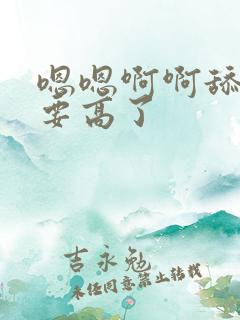 嗯嗯啊啊舔
要高了
吉永勉
未经同意禁止转载